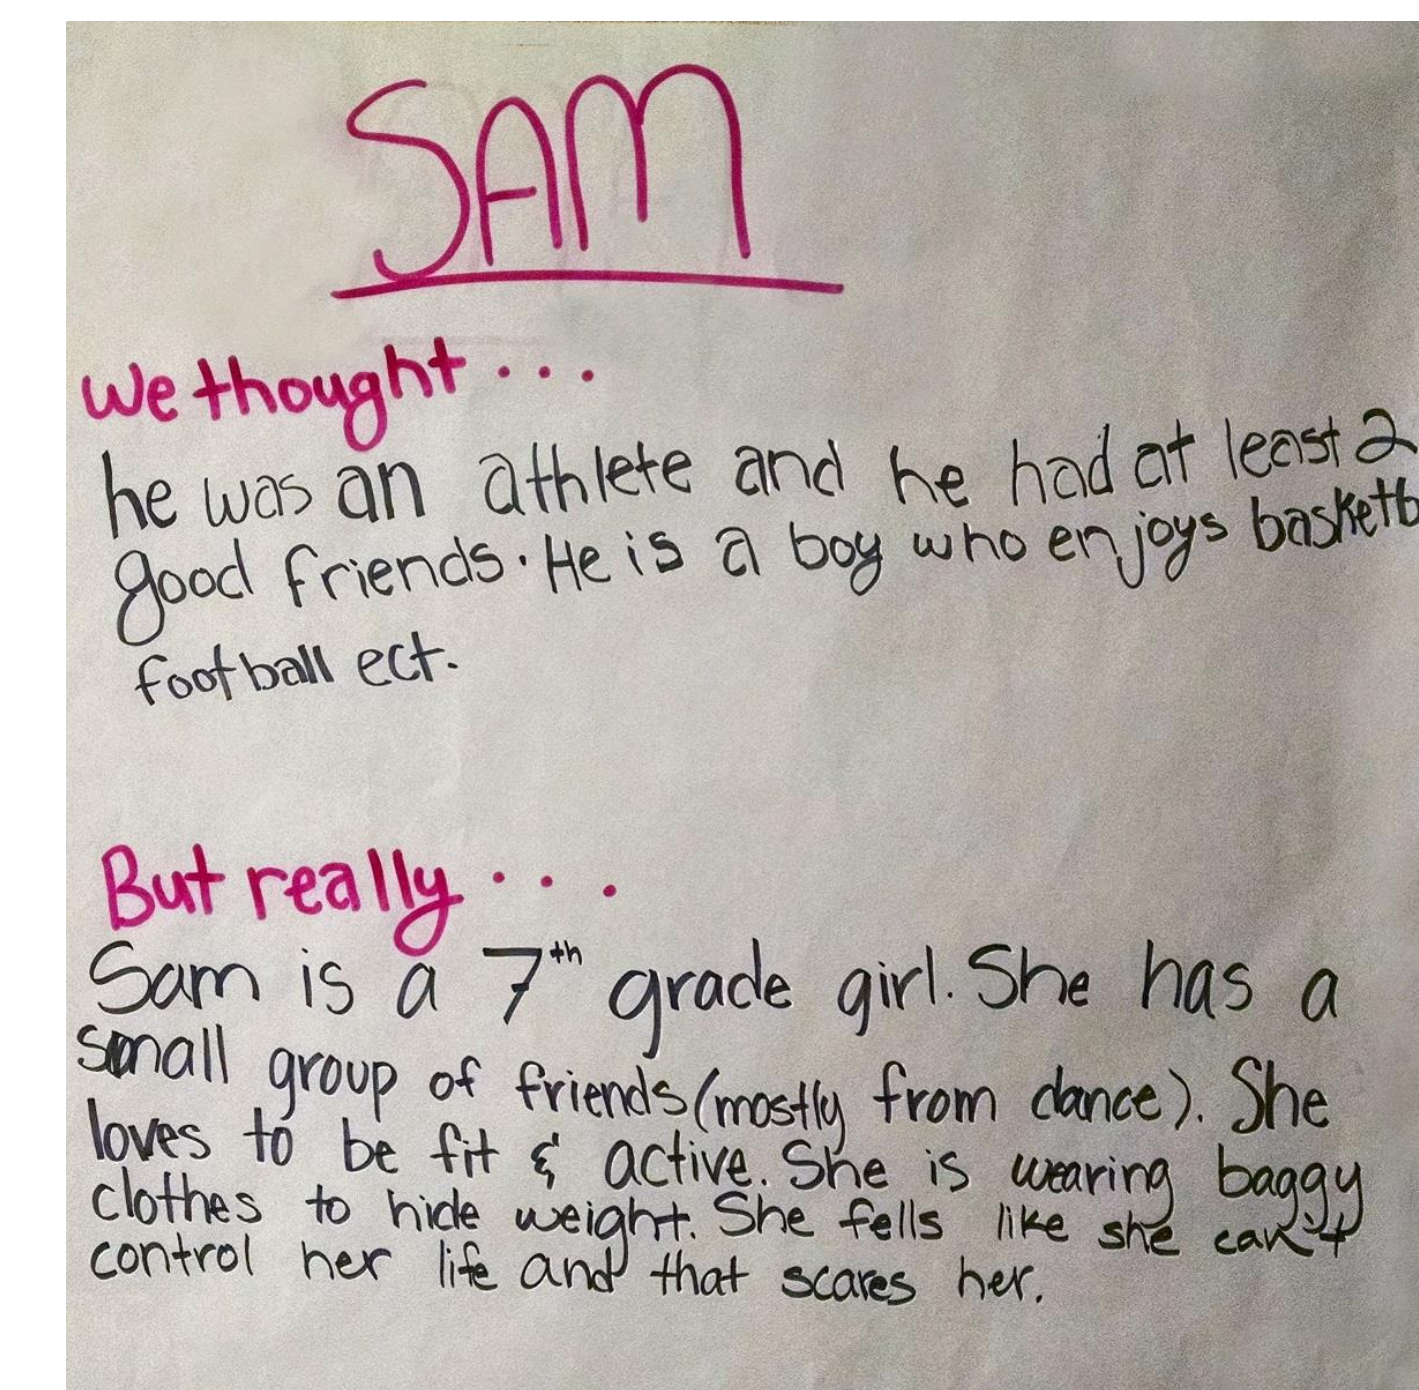 SAM
We thought...
he was an athlete and he had at least 2
good friends. He is a boy who enjoys basketb
football ect.
But really...
Sam is a 7th grade girl. She has a
small group of friends (mostly from dance). She
loves to be fit & active. She is wearing baggy
clothes to hide weight. She fells like she can't
control her life and that scares her.